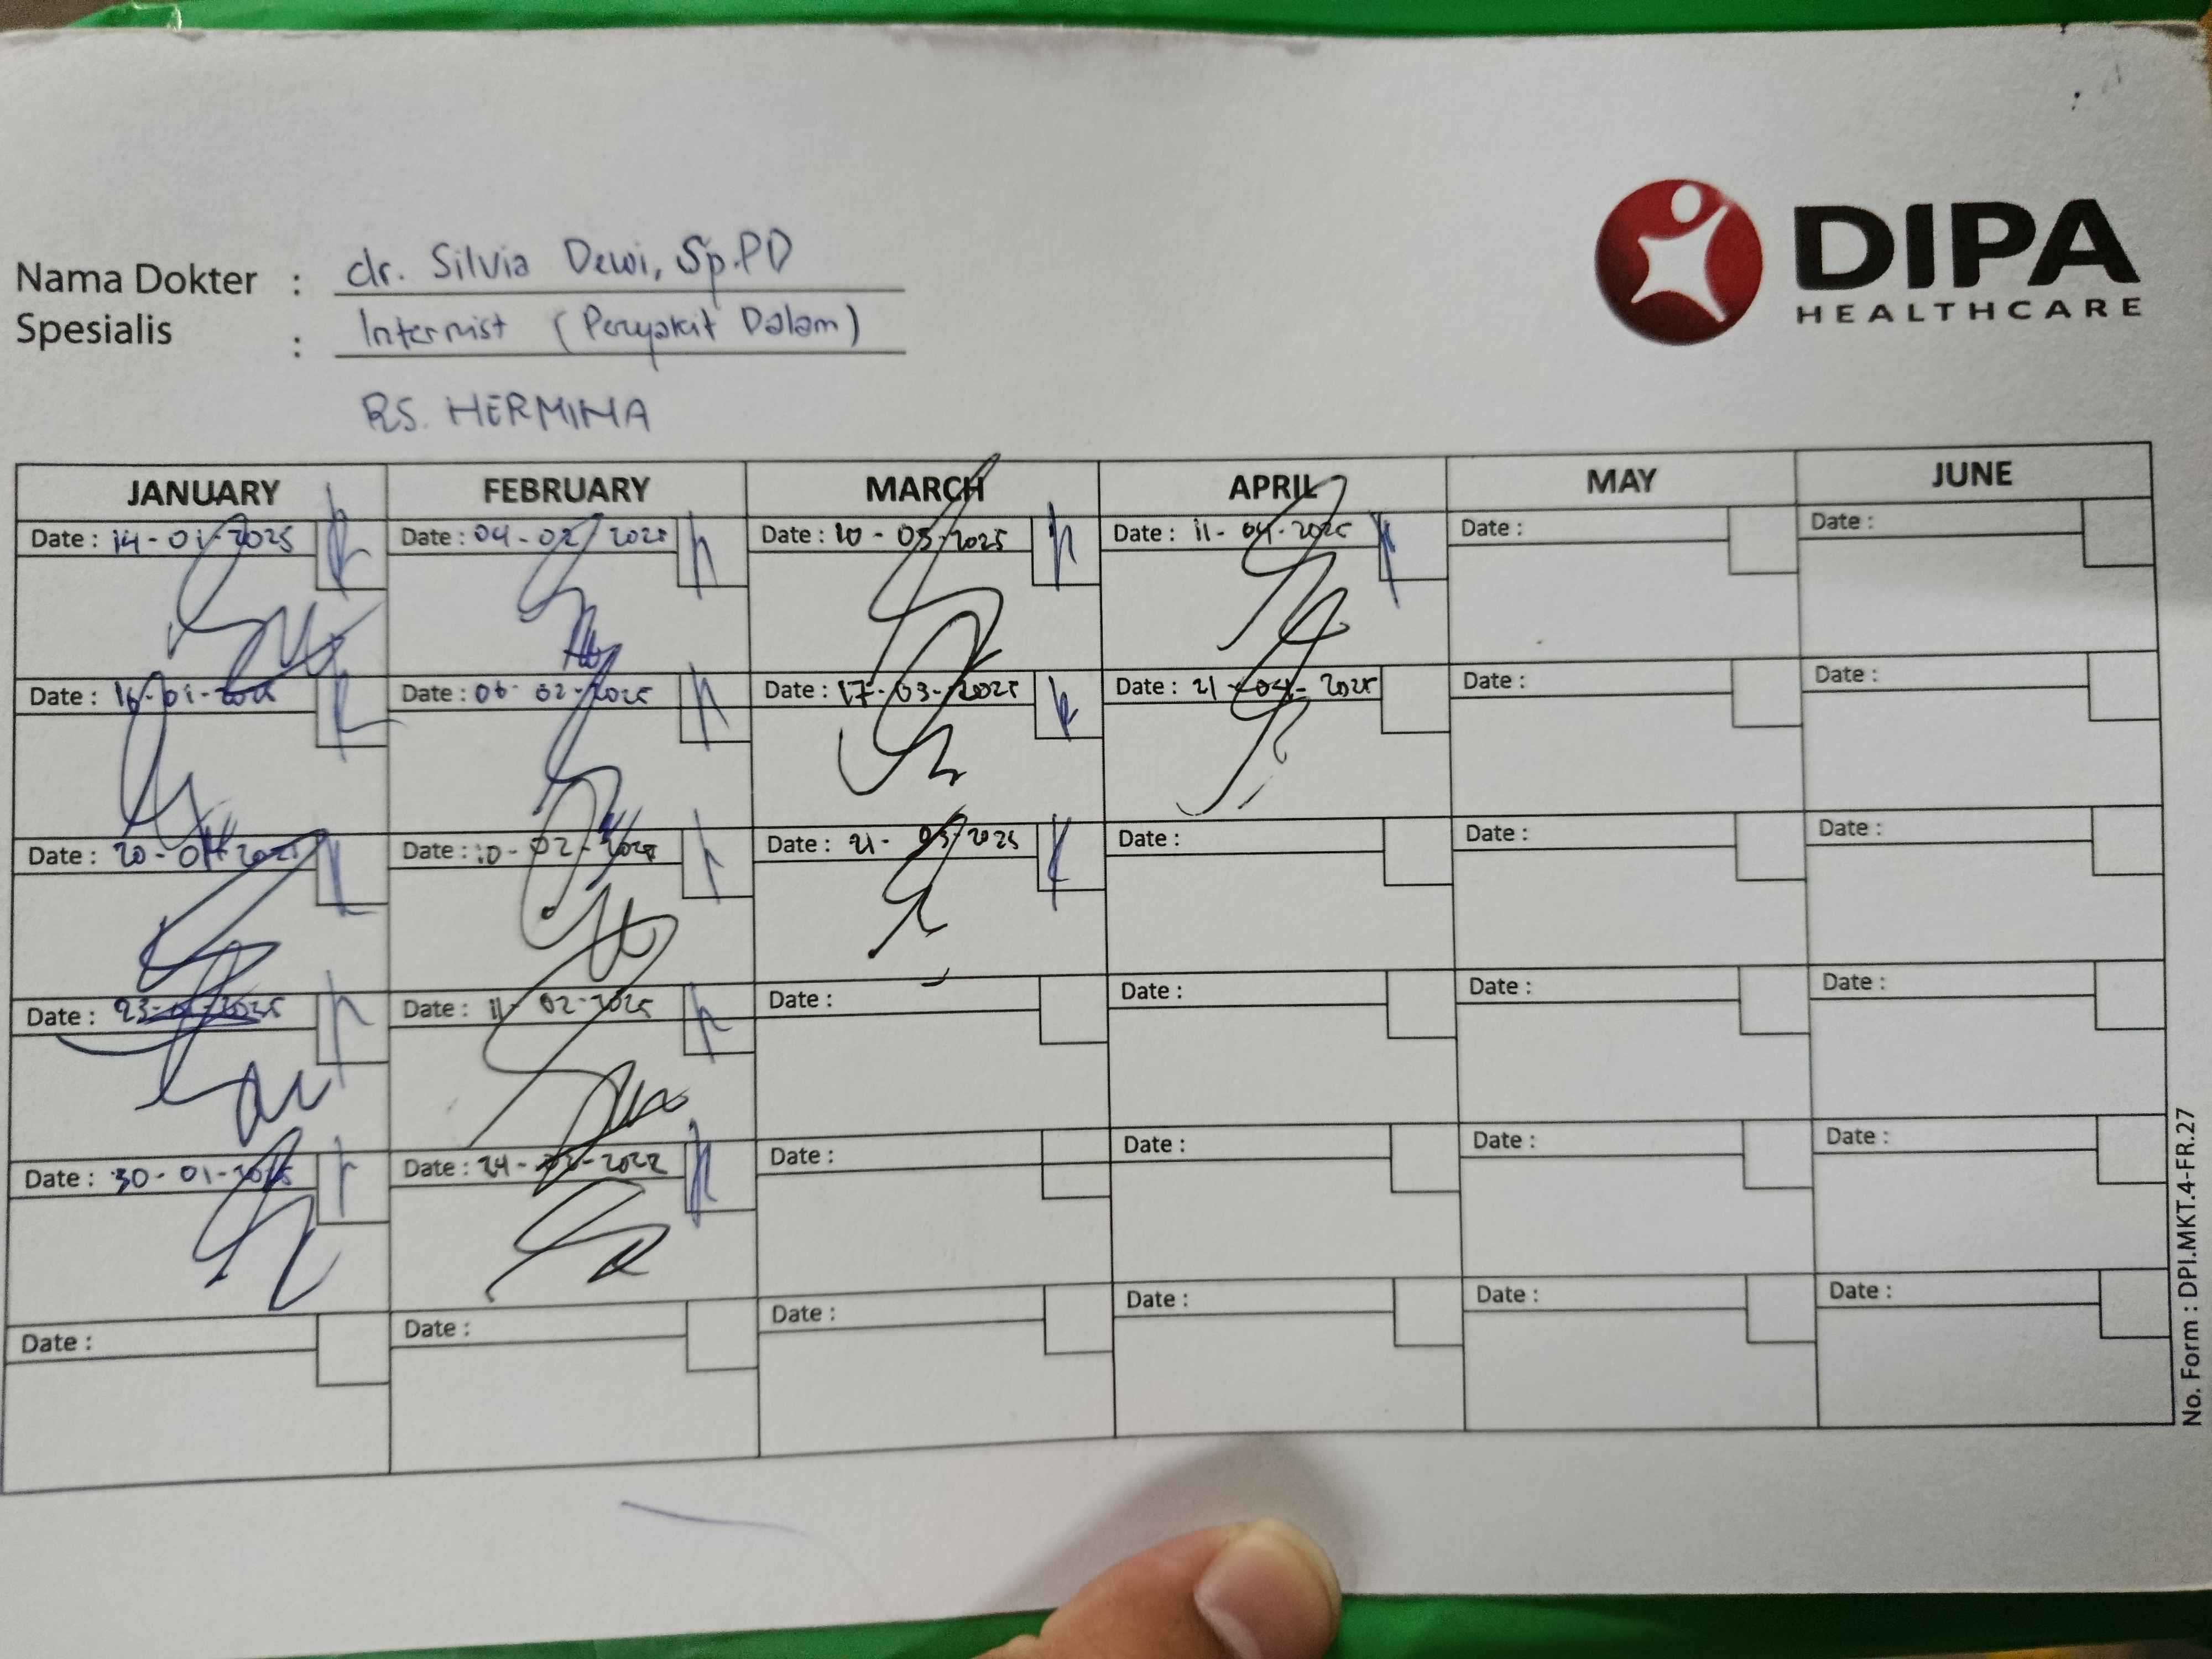 DIPA
HEALTHCARE
Nama Dokter : dr. Silvia Dewi, Sp.PD
Spesialis : Internist (Penyakit Dalam)
RS. HERMINA
JANUARY FEBRUARY MARCH APRIL MAY JUNE
Date : 14-01-2025 Date : 04-02 2025 Date : 10-03-2025 Date : 11-04-2025 Date : Date :
Date : 16-01-2025 Date : 06-02-2025 Date : 17-03-2025 Date : 21-04-2025 Date : Date :
Date : 20-01-2025 Date : 10-02-2025 Date : 21-03-2025 Date : Date : Date :
Date : 23-01-2025 Date : 11-02-2025 Date : Date : Date : Date :
Date : 30-01-2025 Date : 24- Date : Date : Date : Date :
Date : Date : Date : Date : Date : Date :
No. Form : DPI.MKT.4-FR.27